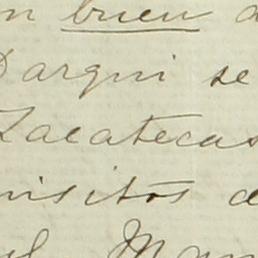 n buen a
Dargui se
Zacatecas
uisitos d